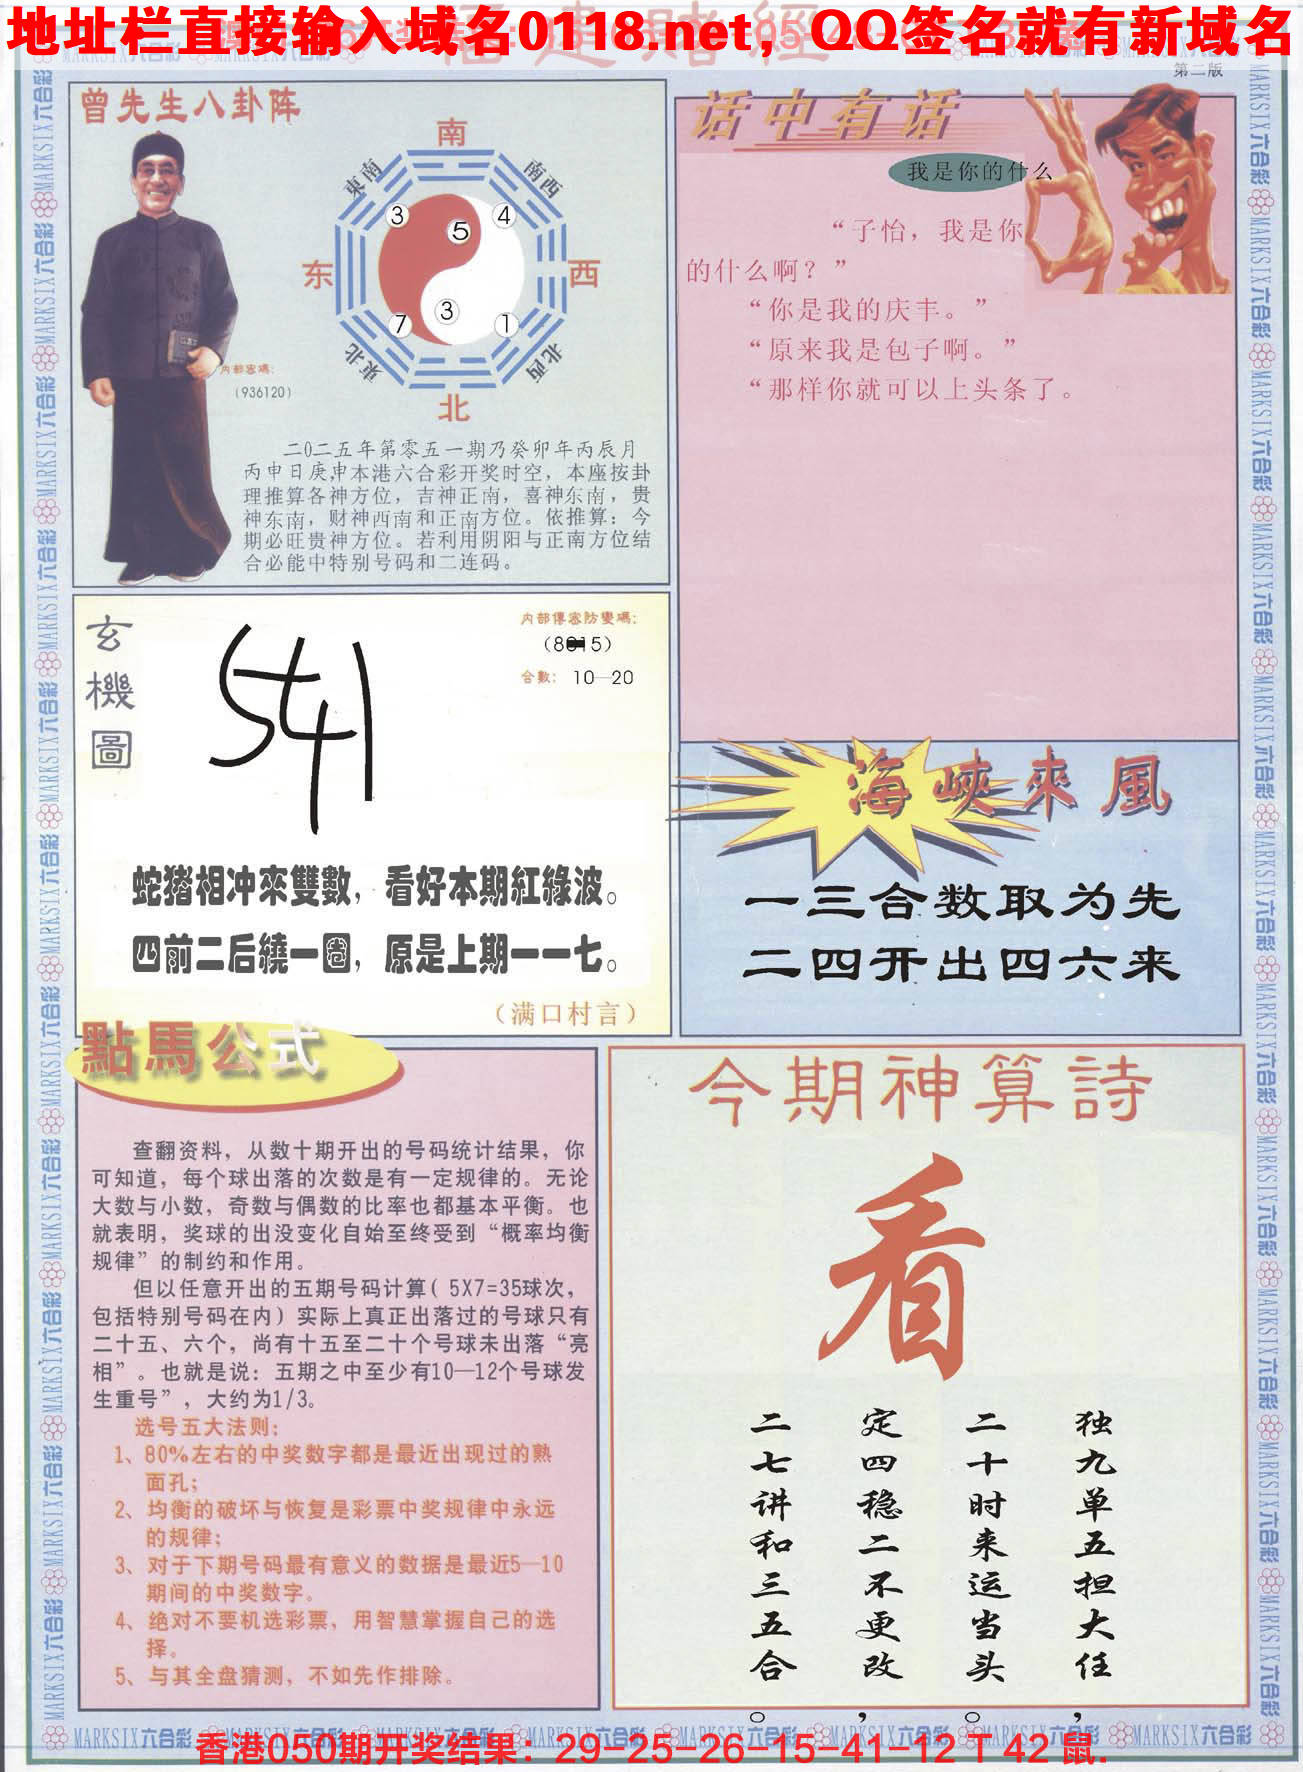 地址栏直接输入域名0118.net，QQ签名就有新域名
第二版
曾先生八卦阵
南
東南
南西
3
5
4
东
西
7
3
1
東北
北西
北
内部密碼：
（936120）
二0二五年第零五一期乃癸卯年丙辰月
丙申日庚申本港六合彩开奖时空，本座按卦
理推算各神方位，吉神正南，喜神东南，贵
神东南，财神西南和正南方位。依推算：今
期必旺贵神方位。若利用阴阳与正南方位结
合必能中特别号码和二连码。
话中有话
我是你的什么
“子怡，我是你
的什么啊？”
“你是我的庆丰。”
“原来我是包子啊。”
“那样你就可以上头条了。
玄機圖
内部傳密防變碼：
合數： 10—20
541
蛇猪相冲來雙數，看好本期紅綠波。
四前二后繞一圈，原是上期一一七。
（满口村言）
海峽來風
一三合数取为先
二四开出四六来
點馬公式
查翻资料，从数十期开出的号码统计结果，你
可知道，每个球出落的次数是有一定规律的。无论
大数与小数，奇数与偶数的比率也都基本平衡。也
就表明，奖球的出没变化自始至终受到“概率均衡
规律”的制约和作用。
但以任意开出的五期号码计算（5X7=35球次，
包括特别号码在内）实际上真正出落过的号球只有
二十五、六个，尚有十五至二十个号球未出落“亮
相”。也就是说：五期之中至少有10—12个号球发
生重号”，大约为1/3。
选号五大法则：
1、80%左右的中奖数字都是最近出现过的熟
面孔；
2、均衡的破坏与恢复是彩票中奖规律中永远
的规律；
3、对于下期号码最有意义的数据是最近5—10
期间的中奖数字。
4、绝对不要机选彩票，用智慧掌握自己的选
择。
5、与其全盘猜测，不如先作排除。
今期神算詩
看
独九单五担大任，
二十时来运当头。
定四稳二不更改，
二七讲和三五合。
MARKSIX六合彩
香港050期开奖结果：29-25-26-15-41-12 T 42 鼠.